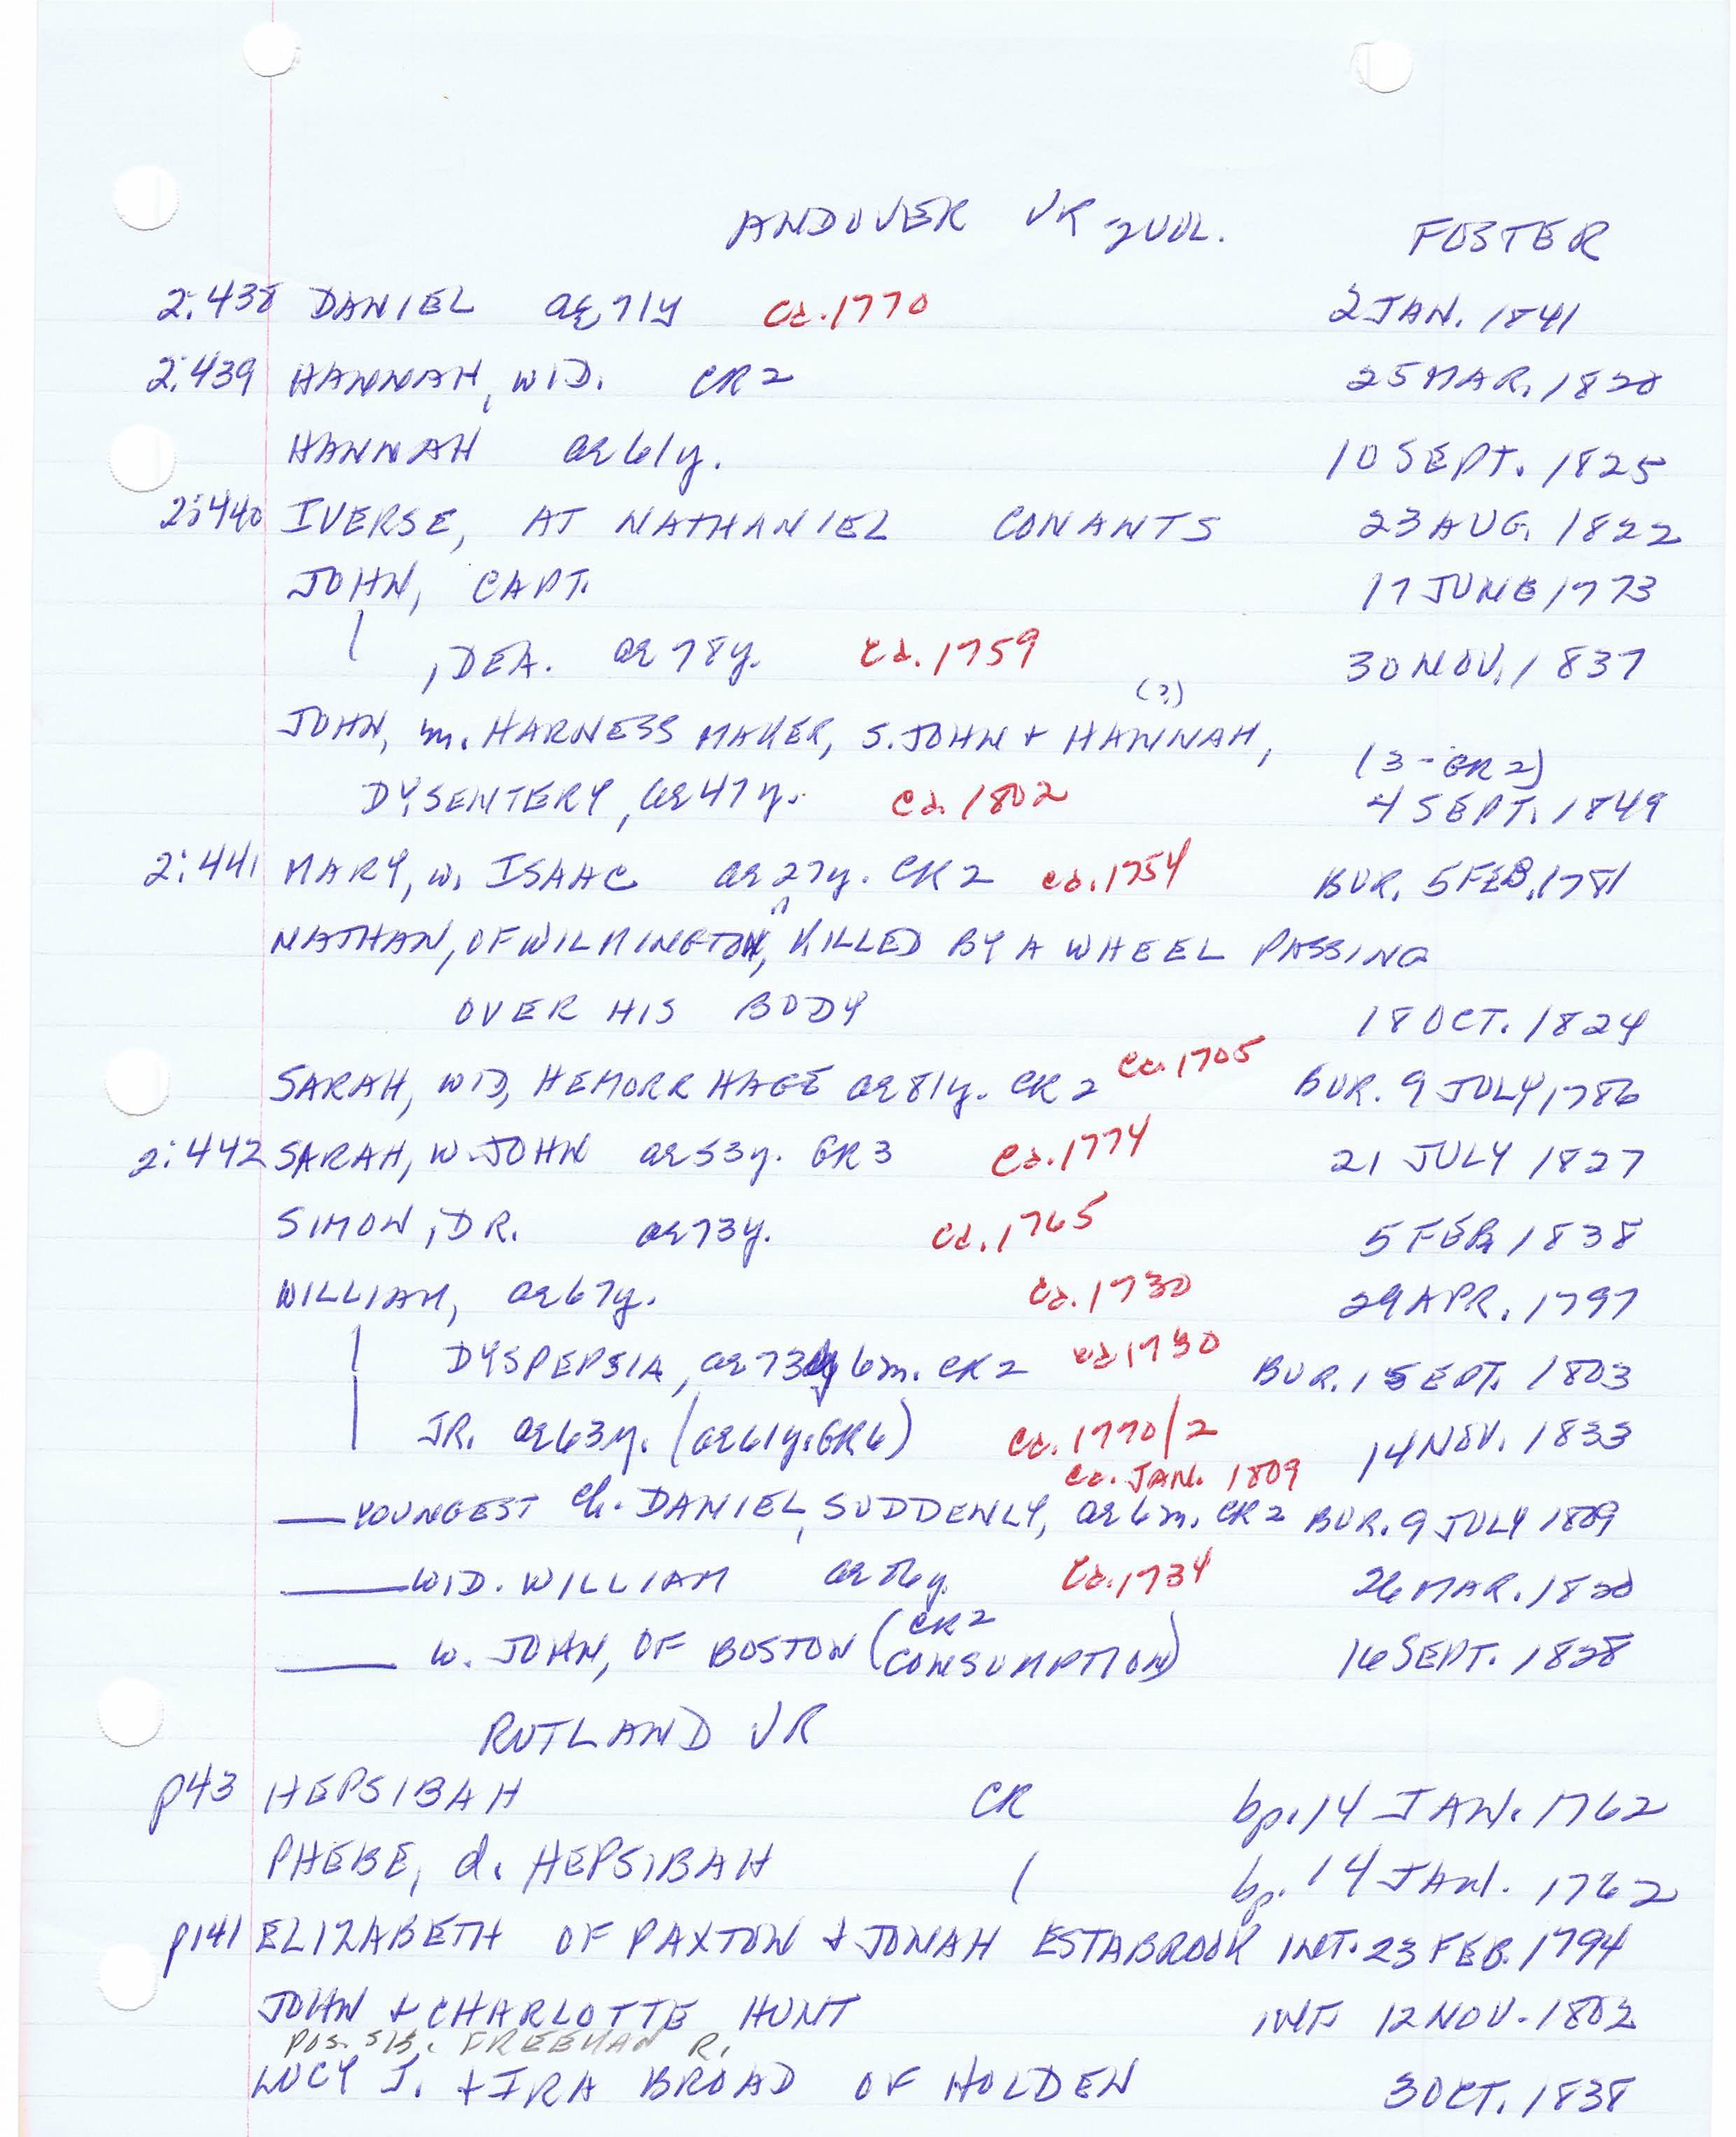 ANDOVER VR 2VOL. FOSTER
2:438 DANIEL ae 71y ca. 1770 2 JAN. 1841
2:439 HANNAH, WID. CR2 25 MAR. 1820
HANNAH ae 61y. 10 SEPT. 1825
2:440 IVERSE, AT NATHANIEL CONANTS 23 AUG. 1822
JOHN, CAPT. 17 JUNE 1773
, DEA. ae 78y. ca. 1759 30 NOV. 1837
(?)
JOHN, m. HARNESS MAKER, S. JOHN + HANNAH,
(3-GR2)
DYSENTERY, ae 47y. ca. 1802 4 SEPT. 1849
2:441 MARY, w. ISAAC ae 27y. CR2 ca. 1754 BUR. 5 FEB. 1781
NATHAN, OF WILMINGTON, KILLED BY A WHEEL PASSING
OVER HIS BODY 18 OCT. 1824
SARAH, WID, HEMORRHAGE ae 81y. CR2 ca. 1705 BUR. 9 JULY 1786
2:442 SARAH, W. JOHN ae 53y. GR3 ca. 1774 21 JULY 1827
SIMON, DR. ae 73y. ca. 1765 5 FEB. 1838
WILLIAM, ae 67y. ca. 1730 29 APR. 1797
DYSPEPSIA, ae 73y 6m. CR2 ca 1730 BUR. 1 SEPT. 1803
JR. ae 63y. (ae 61y. GR6) ca. 1770/2 14 NOV. 1833
ca. JAN. 1809
— YOUNGEST ch. DANIEL, SUDDENLY, ae 6m. CR2 BUR. 9 JULY 1809
— WID. WILLIAM ae 86y. ca. 1734 26 MAR. 1820
— w. JOHN, OF BOSTON (CR2 CONSUMPTION) 16 SEPT. 1828
RUTLAND VR
p43 HEPSIBAH CR bp. 14 JAN. 1762
PHEBE, d. HEPSIBAH bp. 14 JAN. 1762
p141 ELIZABETH OF PAXTON + JONAH ESTABROOK INT. 23 FEB. 1794
JOHN + CHARLOTTE HUNT INT. 12 NOV. 1802
POS. SIS. FREEMAN R.
LUCY J. + IRA BROAD OF HOLDEN 3 OCT. 1838